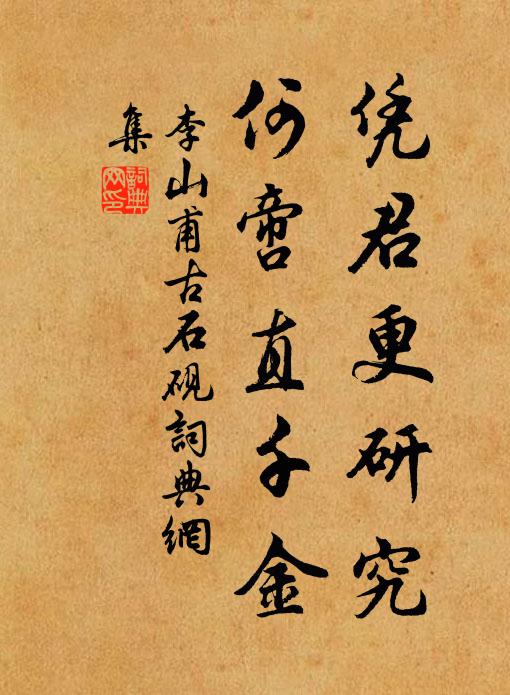 凭君更研究
何啻直千金
李山甫古石砚詞典網
集
詞典
网印